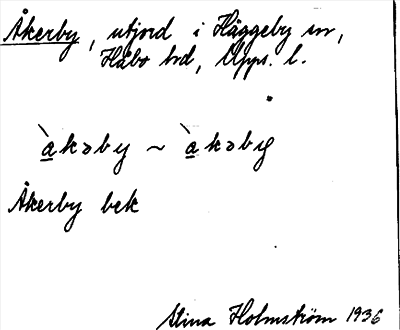 Åkerby, utjord i Häggeby sn,
Håbo hd, Upps. l.
`akəby ~ `akəby
Åkerby bek
Stina Holmström 1936